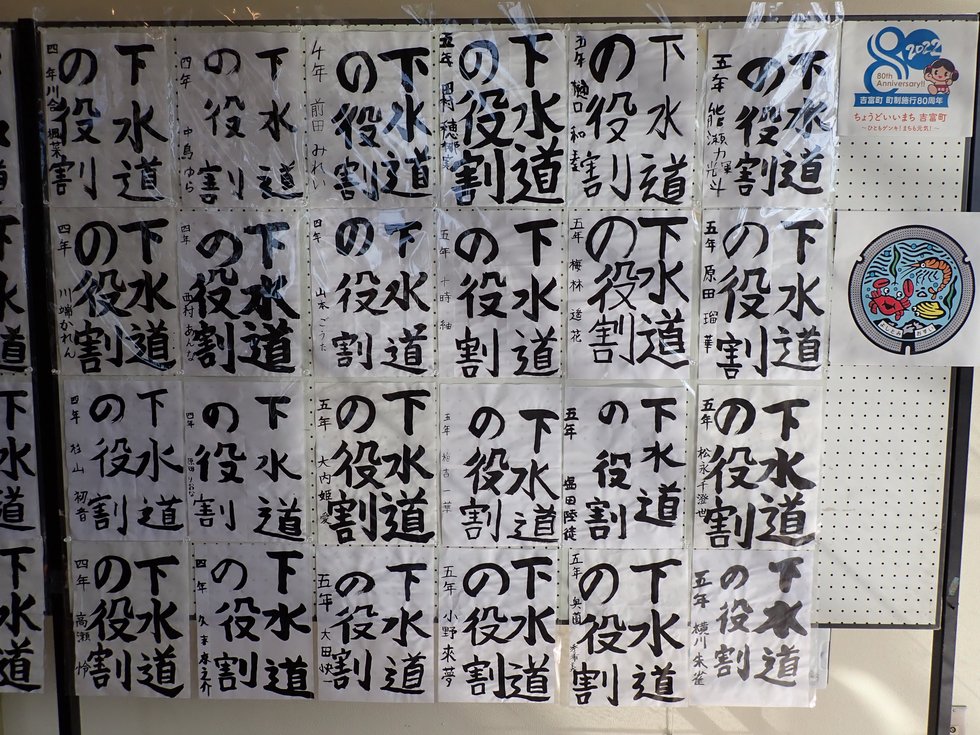 下水道
の役割
四年
下水道
の役割
四年 中島 ゆら
下水道
の役割
4年 前田 みれい
下水道
の役割
五年
下水道
の役割
五年 樋口 和
下水道
の役割
五年 能瀬
下水道
の役割
四年 川端 かれん
下水道
の役割
四年 西村 あんな
下水道
の役割
四年 山本 ごうた
下水道
の役割
五年 十時 紬
下水道
の役割
五年 梅林 逢花
下水道
の役割
五年 原田 瑠華
下水道
の役割
四年 杉山 初音
下水道
の役割
四年 原田 りおな
下水道
の役割
五年 大内 姫愛
下水道
の役割
五年
下水道
の役割
五年
下水道
の役割
五年 松永 千澄世
下水道
の役割
四年 高瀬 怜
下水道
の役割
四年 久末 春之介
下水道
の役割
五年 大田 快一
下水道
の役割
五年 小野 來夢
下水道
の役割
五年 奥薗
下水道
の役割
五年 横川 朱雀
2022
80th
Anniversary!!
吉富町 町制施行80周年
ちょうどいいまち 吉富町
～ひともゲンキ！まちも元気！～
よしとみ おすい